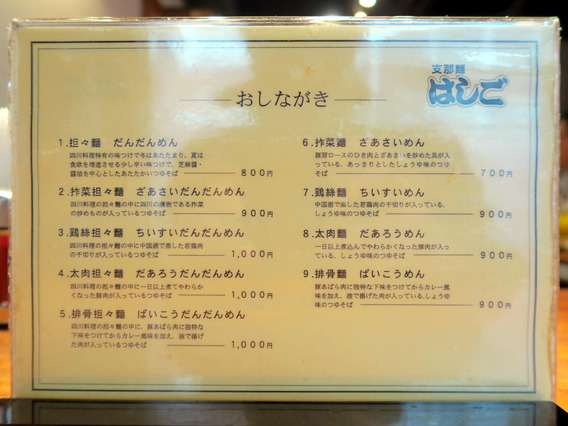 おしながき
支那麺
はしご
1.担々麺 だんだんめん
四川料理特有の味つけで冬はあたたまり、夏は
食欲を増進させる少し辛い味つけで、芝麻醤・
醤油を中心としたあたたかいつゆそば
800円
2.搾菜担々麺 ざあさいだんだんめん
四川料理の担々麺の中に四川の漬物である搾菜
の炒めものが入っているつゆそば
900円
3.鶏絲担々麺 ちいすいだんだんめん
四川料理の担々麺の中に中国酒で蒸した若鶏肉
の千切りが入っているつゆそば
1,000円
4.太肉担々麺 だあろうだんだんめん
四川料理の担々麺の中に一日以上煮てやわらか
くなった豚肉が入っているつゆそば
1,000円
5.排骨担々麺 ぱいこうだんだんめん
四川料理の担々麺の中に、豚あばら肉に独特な
下味をつけてからカレー風味を加え、油で揚げ
た肉が入っているつゆそば
1,000円
6.搾菜麺 ざあさいめん
豚肩ロースのひき肉とざあさいを炒めた具が入っ
ている、あっさりとしたしょうゆ味のつゆそば
700円
7.鶏絲麺 ちいすいめん
中国酒で蒸した若鶏肉の千切りが入っている、
しょうゆ味のつゆそば
900円
8.太肉麺 だあろうめん
一日以上煮込んでやわらかくなった豚肉が入っ
ている、しょうゆ味のつゆそば
900円
9.排骨麺 ぱいこうめん
豚あばら肉に独特な下味をつけてからカレー風
味を加え、油で揚げた肉が入っている、しょうゆ
味のつゆそば
900円